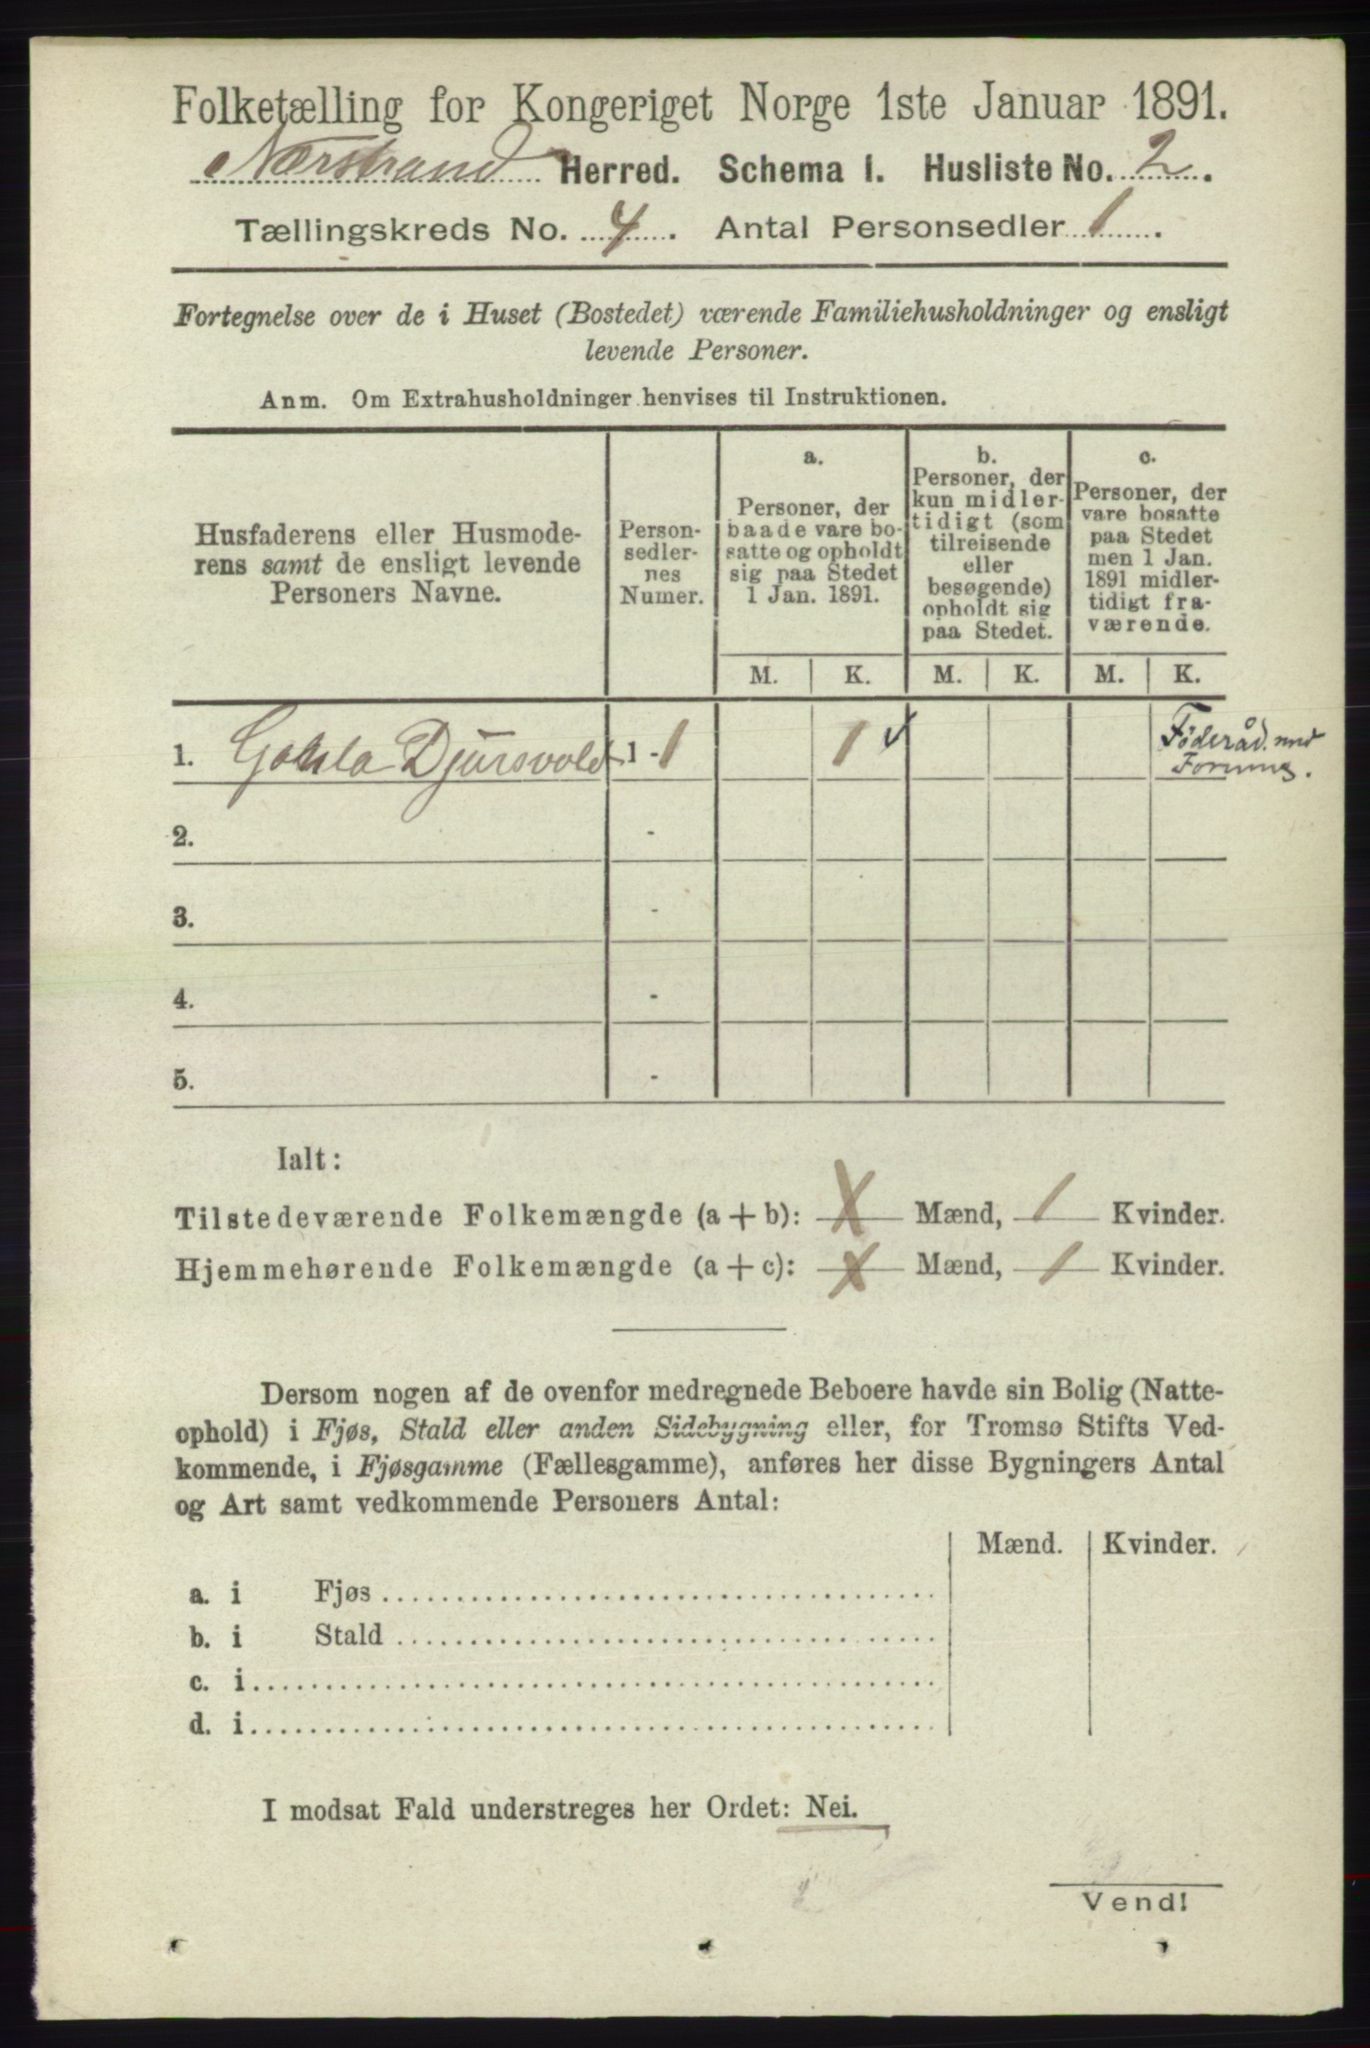 Folketælling for Kongeriget Norge 1ste Januar 1891.
Nærstrand Herred. Schema I. Husliste No. 2.
Tællingskreds No. 4. Antal Personsedler 1.
Fortegnelse over de i Huset (Bostedet) værende Familiehusholdninger og ensligt
levende Personer.
Anm. Om Extrahusholdninger henvises til Instruktionen.
Husfaderens eller Husmode-
rens samt de ensligt levende
Personers Navne.
Person-
sedler-
nes
Numer.
a.
Personer, der
baade vare bo-
satte og opholdt
sig paa Stedet
1 Jan. 1891.
b.
Personer, der
kun midler-
tidigt (som
tilreisende
eller
besøgende)
opholdt sig
paa Stedet.
c.
Personer, der
vare bosatte
paa Stedet
men 1 Jan.
1891 midler-
tidigt fra-
værende.
M. K. M. K. M. K.
1. Djursvold 1 - 1 1 Föderåd. med
2. -
3. -
4. -
5. -
Ialt:
Tilstedeværende Folkemængde (a + b): X Mænd, 1 Kvinder.
Hjemmehørende Folkemængde (a + c): X Mænd, 1 Kvinder.
Dersom nogen af de ovenfor medregnede Beboere havde sin Bolig (Natte-
ophold) i Fjøs, Stald eller anden Sidebygning eller, for Tromsø Stifts Ved-
kommende, i Fjøsgamme (Fællesgamme), anføres her disse Bygningers Antal
og Art samt vedkommende Personers Antal:
Mænd. Kvinder.
a. i Fjøs
b. i Stald
c. i
d. i
I modsat Fald understreges her Ordet: Nei.
Vend!